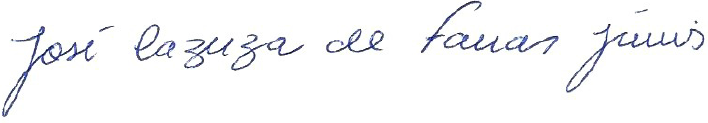 José Cazuza de Farias Júnior